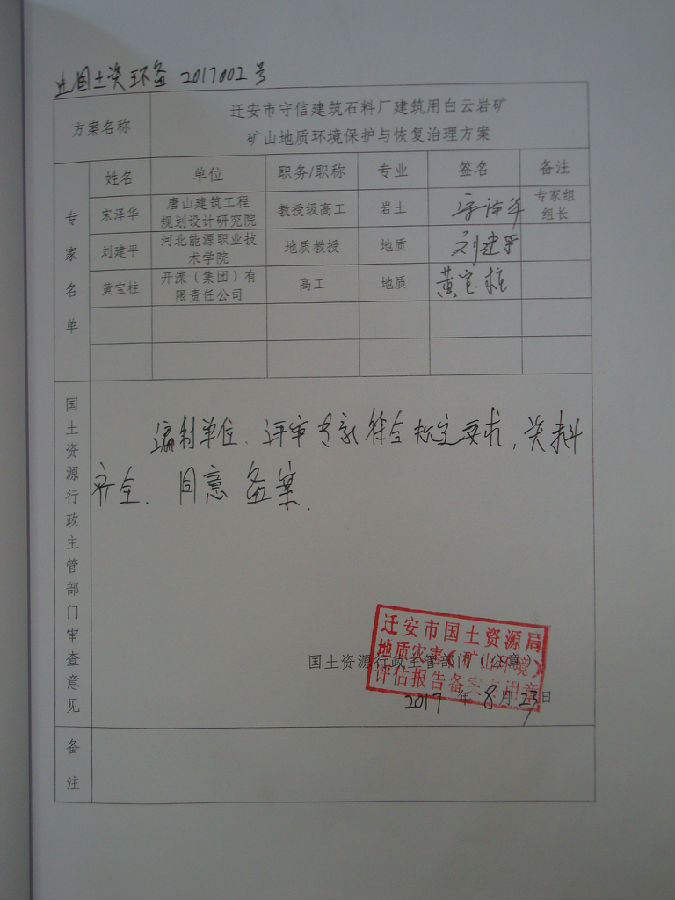 迁国土资环备 2017002 号
方案名称
迁安市守信建筑石料厂建筑用白云岩矿
矿山地质环境保护与恢复治理方案
专家名单
姓名 单位 职务/职称 专业 签名 备注
宋泽华 唐山建筑工程规划设计研究院 教授级高工 岩土 专家组组长
刘建平 河北能源职业技术学院 地质教授 地质 刘建平
黄宝柱 开滦（集团）有限责任公司 高工 地质 黄宝柱
国土资源行政主管部门审查意见
编制单位、评审专家符合规定要求，资料
齐全．同意备案．
国土资源行政主管部门（公章）
迁安市国土资源局
地质灾害（矿山环境）
评估报告备案专用章
2017 年 8 月 23 日
备注